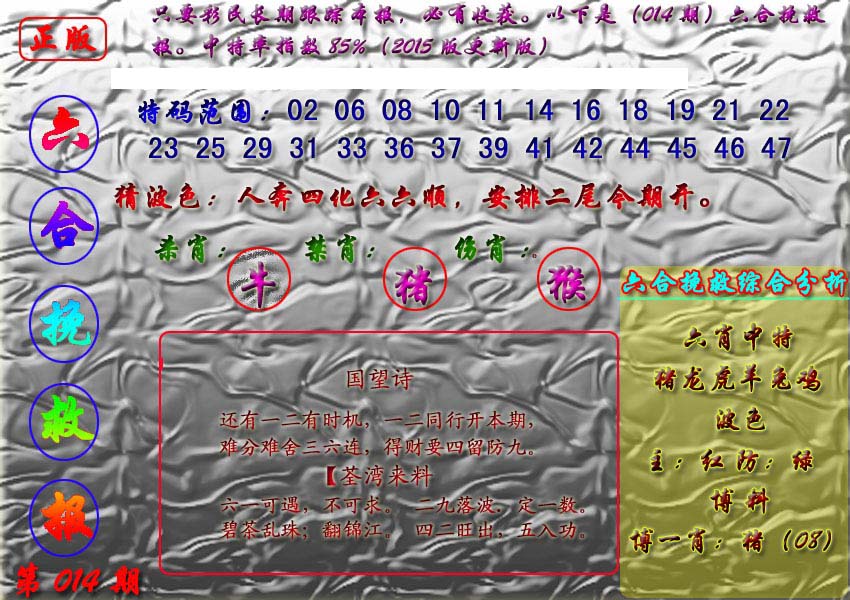 正版
只要彩民长期跟踪本报，必有收获。以下是（014期）六合挽救
报。中特率指数85%（2015版更新版）
六
合
挽
救
报
第014期
特码范围：02 06 08 10 11 14 16 18 19 21 22
23 25 29 31 33 36 37 39 41 42 44 45 46 47
猜波色：人奔四化六六顺，安排二尾今期开。
杀肖：牛 禁肖：猪 伤肖：猴
国望诗
还有一二有时机，一二同行开本期，
难分难舍三六连，得财要四留防九。
【荃湾来料
六一可遇，不可求。 二九落波．定一数。
碧茶乱珠；翻锦江。 四二旺出，五入功。
六合挽救综合分析
六肖中特
猪龙虎羊兔鸡
波色
主：红防：绿
博料
博一肖：猪（08）